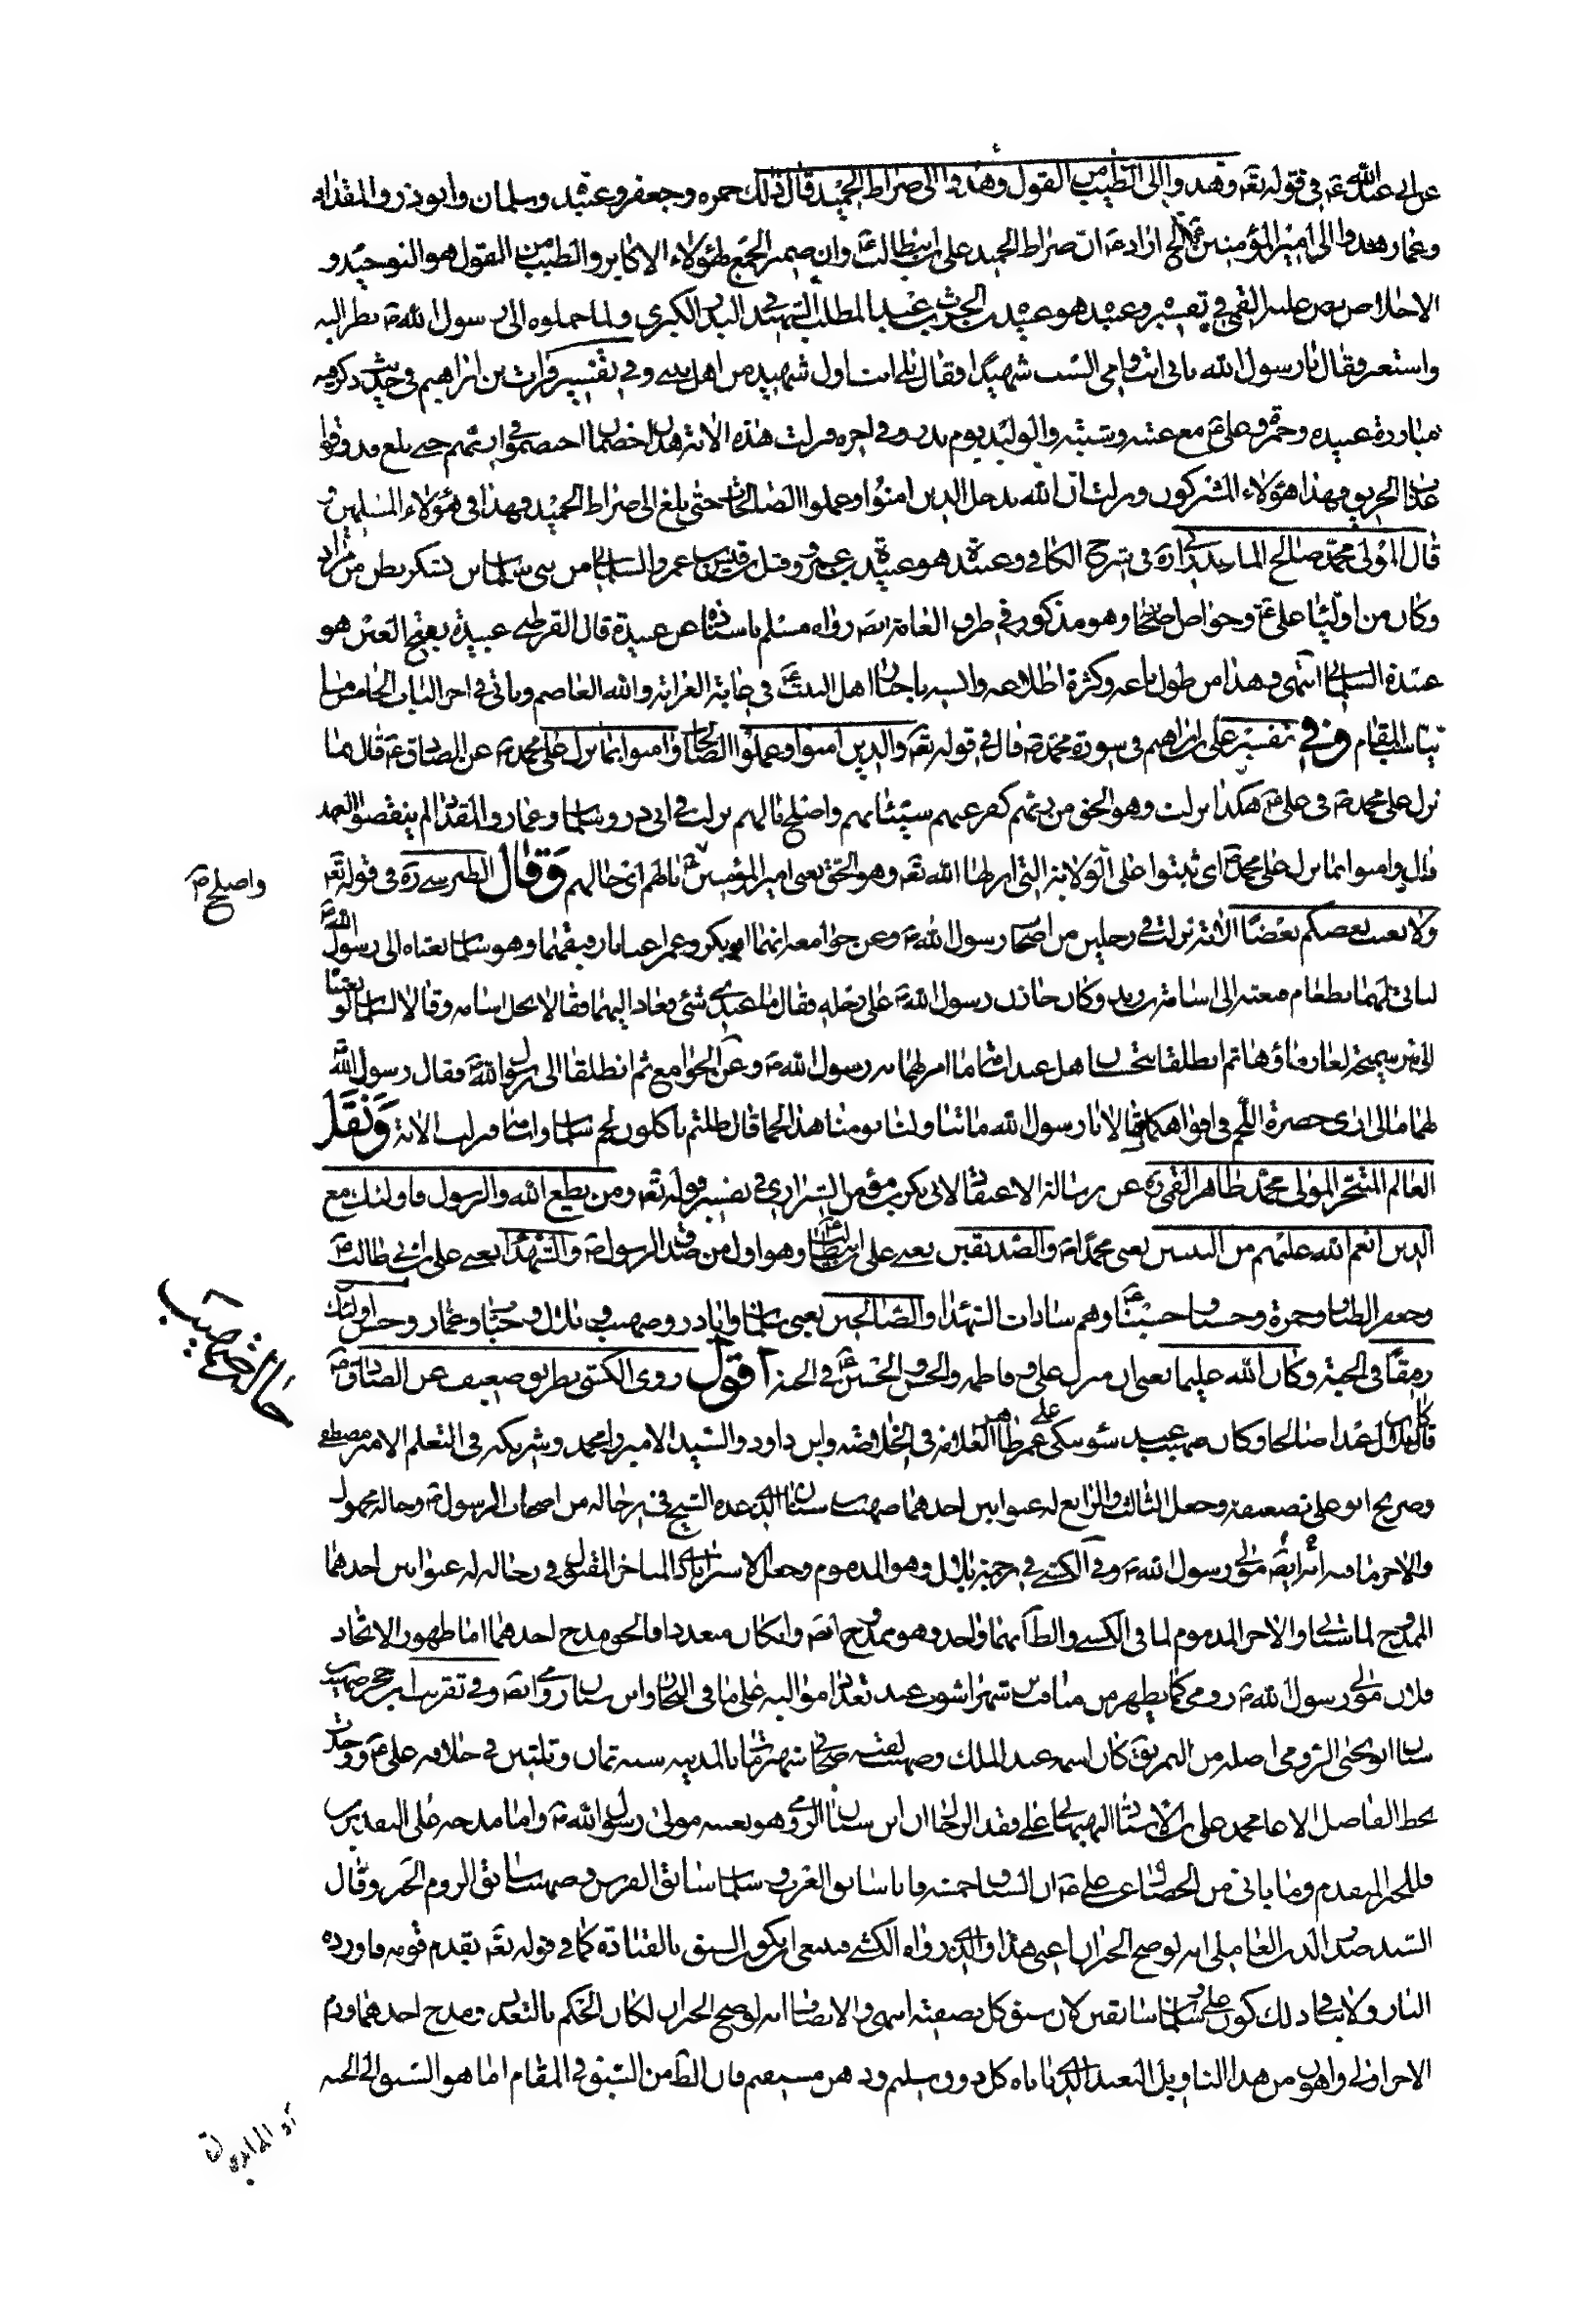 عن ابي عبد الله ع في قوله تعه وهدوا الى الطيب من القول وهدوا الى صراط الحميد قال ذلك حمزه وجعفر وعبيد وسلمان وابوذر والمقداد
وعمار هدوا الى امير المؤمنين ع اراد ع ان صراط الحميد علي بن ابيطالب ع وان ضمير الجمع لهؤلاء الاكابر والطيب من القول هو التوحيد و
الاخلاص نص عليه القمي في تفسيره وعبيد هو عبيدة بن الحرث بن عبد المطلب الشهيد في البدر الكبرى ولما حملوه الى رسول الله ص نظر اليه
واستعبر فقال يا رسول الله بابي انت وامي الست شهيدا فقال بلى انت اول شهيد من اهل بيتي وفي تفسير فرات بن ابراهيم في حديث ذكر فيه
مبارزة عبيده وحمزة وعلي ع مع عتبه وشيبه والوليد يوم بدر وفي اخره فنزلت هذه الاية هذان خصمان اختصموا في ربهم حتى بلغ وذوقوا
عذاب الحريق فهذا هؤلاء المشركون ونزلت ان الله يدخل الذين امنوا وعملوا الصالحات حتى بلغ الى صراط الحميد فهذا في هؤلاء المسلمين و
قال المولى محمد صالح المازندراني ره في شرح الكافي وعبيدة هو عبيدة بن عمرو وقيل بن قيس بن عمرو السلماني من بني سلمان بن يشكر بطن من مراد
وكان من اولياء علي ع وخواص اصحابه وهو مذكور في طرق العامة ايضا رواه مسلم باسناده عن عبيدة قال القرطبي عبيدة بفتح العين هو
عبيدة السلماني انتهى وهذا من طول باعه وكثرة اطلاعه وانسه باخبار اهل البيت ع في غاية الغرابة والله العاصم وياتي في اخر الباب الخامس ما
يناسب المقام وفي تفسير علي بن ابراهيم في سورة محمد ص قال في قوله تعه والذين امنوا وعملوا الصالحات وامنوا بما نزل على محمد ص عن الصادق ع قال بما
نزل على محمد ص في علي ع هكذا نزلت وهو الحق من ربهم كفر عنهم سيئاتهم واصلح بالهم نزلت في ابي ذر وسلمان وعمار والمقداد لم ينقضوا العهد
قال وامنوا بما نزل على محمد ص اي ثبتوا على الولاية التي انزلها الله تعه وهو الحق يعني امير المؤمنين ع بالهم اي حالهم وقال الطبرسي ره في قوله تعه
واصلح ص
ولا يغتب بعضكم بعضا الاية نزلت في رجلين من اصحاب رسول الله ص وعن جوامعه انهما ابوبكر وعمر اغتابا رفيقهما وهو سلمان بعثاه الى رسول الله ص
لياتي لهما بطعام فبعثه الى اسامة بن زيد وكان خازن رسول الله ص على رحله فقال ما عندي شئ فعاد اليهما فقالا بخل اسامه وقالا لسلمان لو بعثناه
الى بئر سميحة لغار ماؤها ثم انطلقا يتجسسان هل عند اسامة ما امر لهما به رسول الله ص وعن الجوامع ثم انطلقا الى رسول الله ص فقال رسول الله ص
لهما ما لي ارى حضرة اللحم في افواهكما قالا يا رسول الله ما تناولنا يومنا هذا لحما قال ظلتم تاكلون لحم سلمان واسامه فنزلت الاية ونقل
العالم المتبحر المولى محمد طاهر القمي ره عن رسالة الاعتقاد لابي بكر بن مؤمن الشيرازي في تفسير قوله تعه ومن يطع الله والرسول فاولئك مع
الذين انعم الله عليهم من النبيين يعني محمدا ص والصديقين يعني علي بن ابيطالب ع وهو اول من صدق الرسول ص والشهداء يعني علي بن ابي طالب ع
وجعفر الطيار وحمزة وحسنا وحسينا ع وهم سادات الشهداء والصالحين يعني سلمان واباذر وصهيب وبلال وخبابا وعمار وحسن اولئك
رفيقا في الجنة وكان الله عليما يعني ان منزل علي وفاطمه والحسن والحسين ع في الجنة اقول روى الكشي بطريق ضعيف عن الصادق ع
حال صهيب
قال كان بلال عبدا صالحا وكان صهيب عبد سوء يبكي على عمر العلامه في الخلاصه وابن داود والسيد الاميرزا محمد وشريكه في التعلم الامير مصطفى
وصريح ابو علي تضعيفه وجعل الثالث والرابع له عنوانين احدهما صهيب بن سنان الذي عده الشيخ في رجاله من اصحاب الرسول ص وحاله مجهول
والاخر ما فيه انه ايضا مولى رسول الله ص وفي الكشي في ترجمة بلال وهو المذموم وجعل الاسترابادي المتاخر في رجاله له عنوانين احدهما
الممدوح لما سياتي والاخر المذموم لما في الكشي والظاهر انهما واحد وهو ممدوح ايضا وان كان متعددا فالحق مدح احدهما اما ظهور الاتحاد
فلان مولى رسول الله ص رومي كما يظهر من مناقب شهراشوب عند تعداد مواليه على ما في البحار وابن سنان رومي ايضا وفي تقريب ابن حجر صهيب بن
سنان ابو يحيى الرومي اصله من النمر يق كان اسمه عبد الملك وصهيب لقبه صحابي شهير مات بالمدينه سنه ثمان وثلثين في خلافه علي ع ووجدت
بخط الفاضل الاغا محمد علي بن الاستاد البهبهاني على نقد الرجال ان ابن سنان الرومي هو بعينه مولى رسول الله ص واما مدحه على التقديرين
فللخبر المتقدم وما ياتي من الخصال عن علي ع ان السباق خمسه فانا سابق العرب وسلمان سابق الفرس وصهيب سابق الروم الخبر وقال
السيد صدر الدين العاملي انه لو صح الخبران اعني هذا والذي رواه الكشي فينبغي ان يكون السبق بالقيادة كما في قوله تعه يقدم قومه فاوردهم
النار ولا ينافي ذلك كون علي ع وسلمان سابقين لان سبق كل بصفته انتهى والانصاف انه لو صح الخبران لكان الحكم بالتعدد ومدح احدهما وذم
الاخر اولى واهون من هذا التاويل البعيد الذي ياباه كل ذوق سليم وذهن مستقيم فان الظاهر من السبق في المقام اما هو السبق الى الجنه